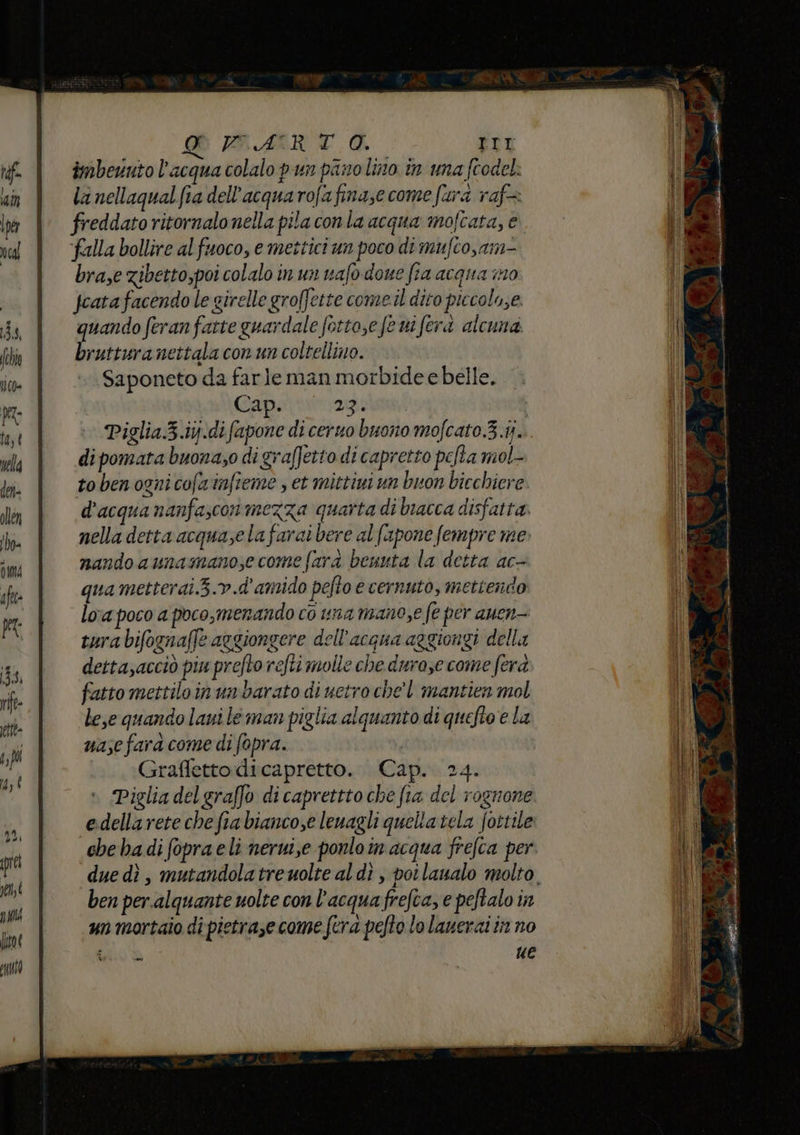 QVARTO. III
imbeuuto l'acqua colalo p un pãno lino in una ſcodel
la nellaqual ſia dell'acqua roſa fina,e come ſarà raf-
freddato ritornalo nella pila con la acqua moſcata, e
falla bollire al fuoco, e mettici un poco di muſco,am-
bra,e zibetto,poi colalo in un uaſo doue ſia acqua mo
ſcata facendo le girelle groſſette come il dito piccolo,e
quando ſeran fatte guardale ſotto,e ſe ui ſerà alcuna
bruttura nettala con un coltellino.
Saponeto da far le man morbide e belle.
Cap. 23.
Piglia.℥.iij.di ſapone di ceruo buono moſcato.℥.ij.
di pomata buona,o di graſſetto di capretto peſta mol-
to ben ogni coſa inſieme , et mittiui un buon bicchiere
d'acqua nanfa,con mezza quarta di biacca disfatta
nella detta acqua,e la farai bere al ſapone ſempre me
nando a una mano,e come ſarà beuuta la detta ac-
qua metterai.℥.v.d'amido peſto e cernuto, mettendo
lo a poco a poco,menando cõ una mano,e ſe per auen-
tura biſognaſſe aggiongere dell'acqua aggiongi della
detta,acciò piu preſto reſti molle che duro,e come ſerà
fatto mettilo in un barato di uetro che'l mantien mol
le,e quando laui le man piglia alquanto di queſto e la
ua,e farà come di ſopra.
Graſſetto di capretto. Cap. 24.
Piglia del graſſo di caprettto che ſia del rognone
e della rete che ſia bianco,e leuagli quella tela ſottile
che ha di ſopra e li nerui,e ponlo in acqua freſca per
due dì , mutandola tre uolte al dì , poi laualo molto
ben per alquante uolte con l'acqua freſca, e peſtalo in
un mortaio di pietra,e come ſerà peſto lo lauerai in no
ue